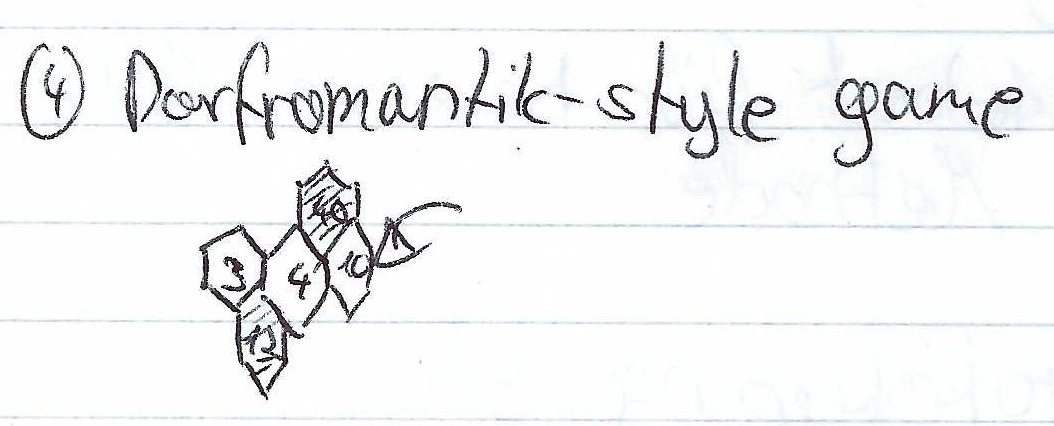 ④ Dorfromantik-style game
40
3 4 10
13